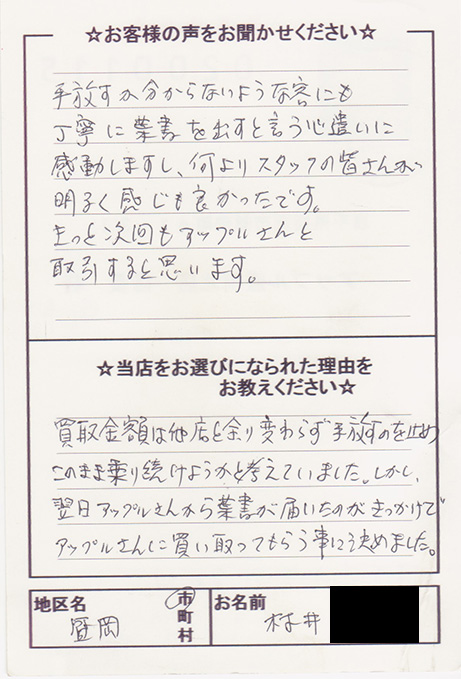 ☆お客様の声をお聞かせください☆
手放すか分からないような客にも
丁寧に葉書を出すと言う心遣いに
感動しますし、何よりスタッフの皆さんが
明るく感じも良かったです。
きっと次回もアップルさんと
取引すると思います。
☆当店をお選びになられた理由を
お教えください☆
買取金額は他店と余り変わらず手放すのを止め
このまま乗り続けようかと考えていました。しかし、
翌日アップルさんから葉書が届いたのがきっかけで
アップルさんに買い取ってもらう事に決めました。
地区名 盛岡 市町村 お名前 村井